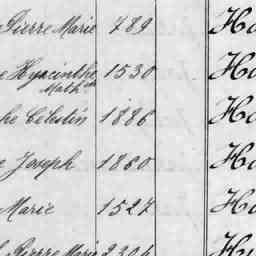 Pierre Marie 789 Ho
Hyacinthe Math 1530 Ho
Célestin 1886 Ho
Joseph 1860 Ho
Marie 1527 Ho
Pierre Marie 2306